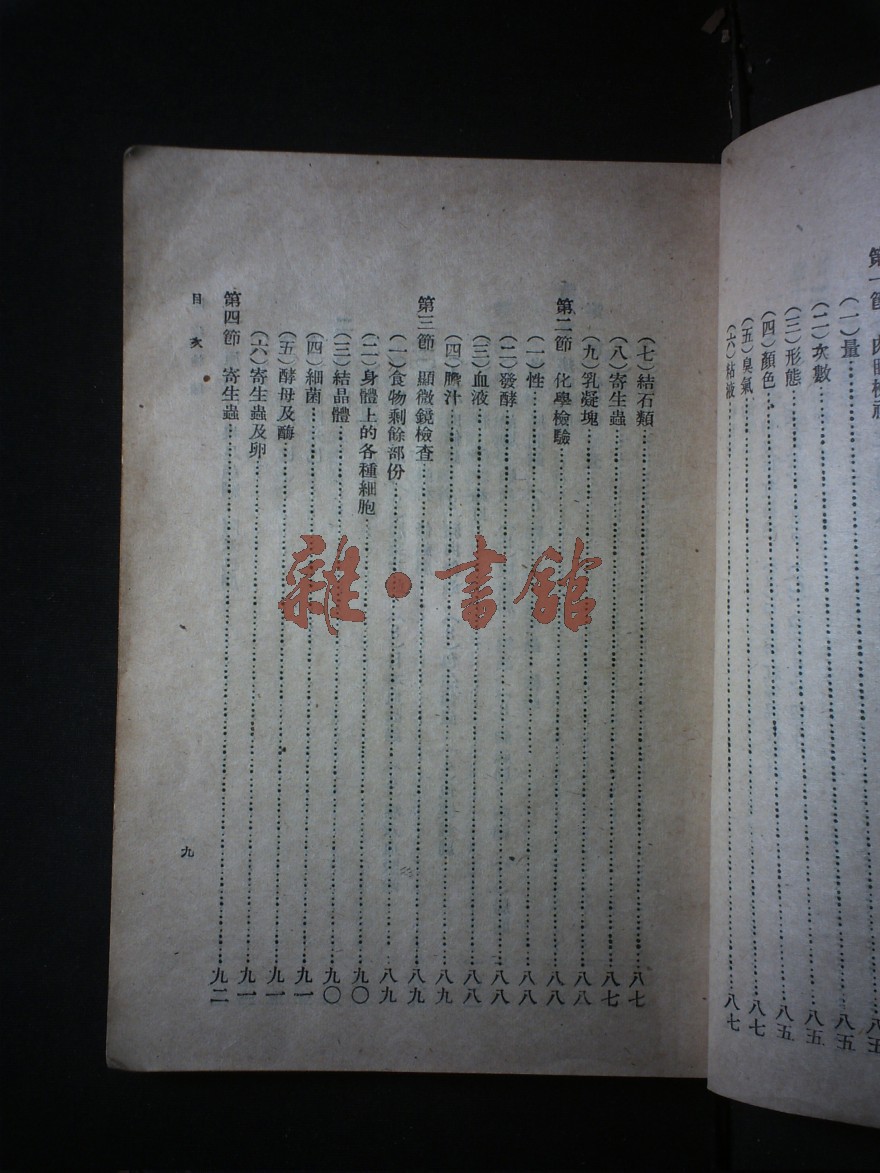 第一節 肉眼檢視……八五
(一)量……八五
(二)次數……八五
(三)形態……八五
(四)顏色……八五
(五)臭氣……八七
(六)粘液……八七
(七)結石類……八七
(八)寄生蟲……八七
(九)乳凝塊……八八
第二節 化學檢驗……八八
(一)性……八八
(二)發酵……八八
(三)血液……八八
(四)膵汁……八九
第三節 顯微鏡檢查……八九
(一)食物剩餘部份……八九
(二)身體上的各種細胞……九〇
(三)結晶體……九〇
(四)細菌……九一
(五)酵母及酶……九一
(六)寄生蟲及卵……九一
第四節 寄生蟲……九二
目次
九
雜·書館